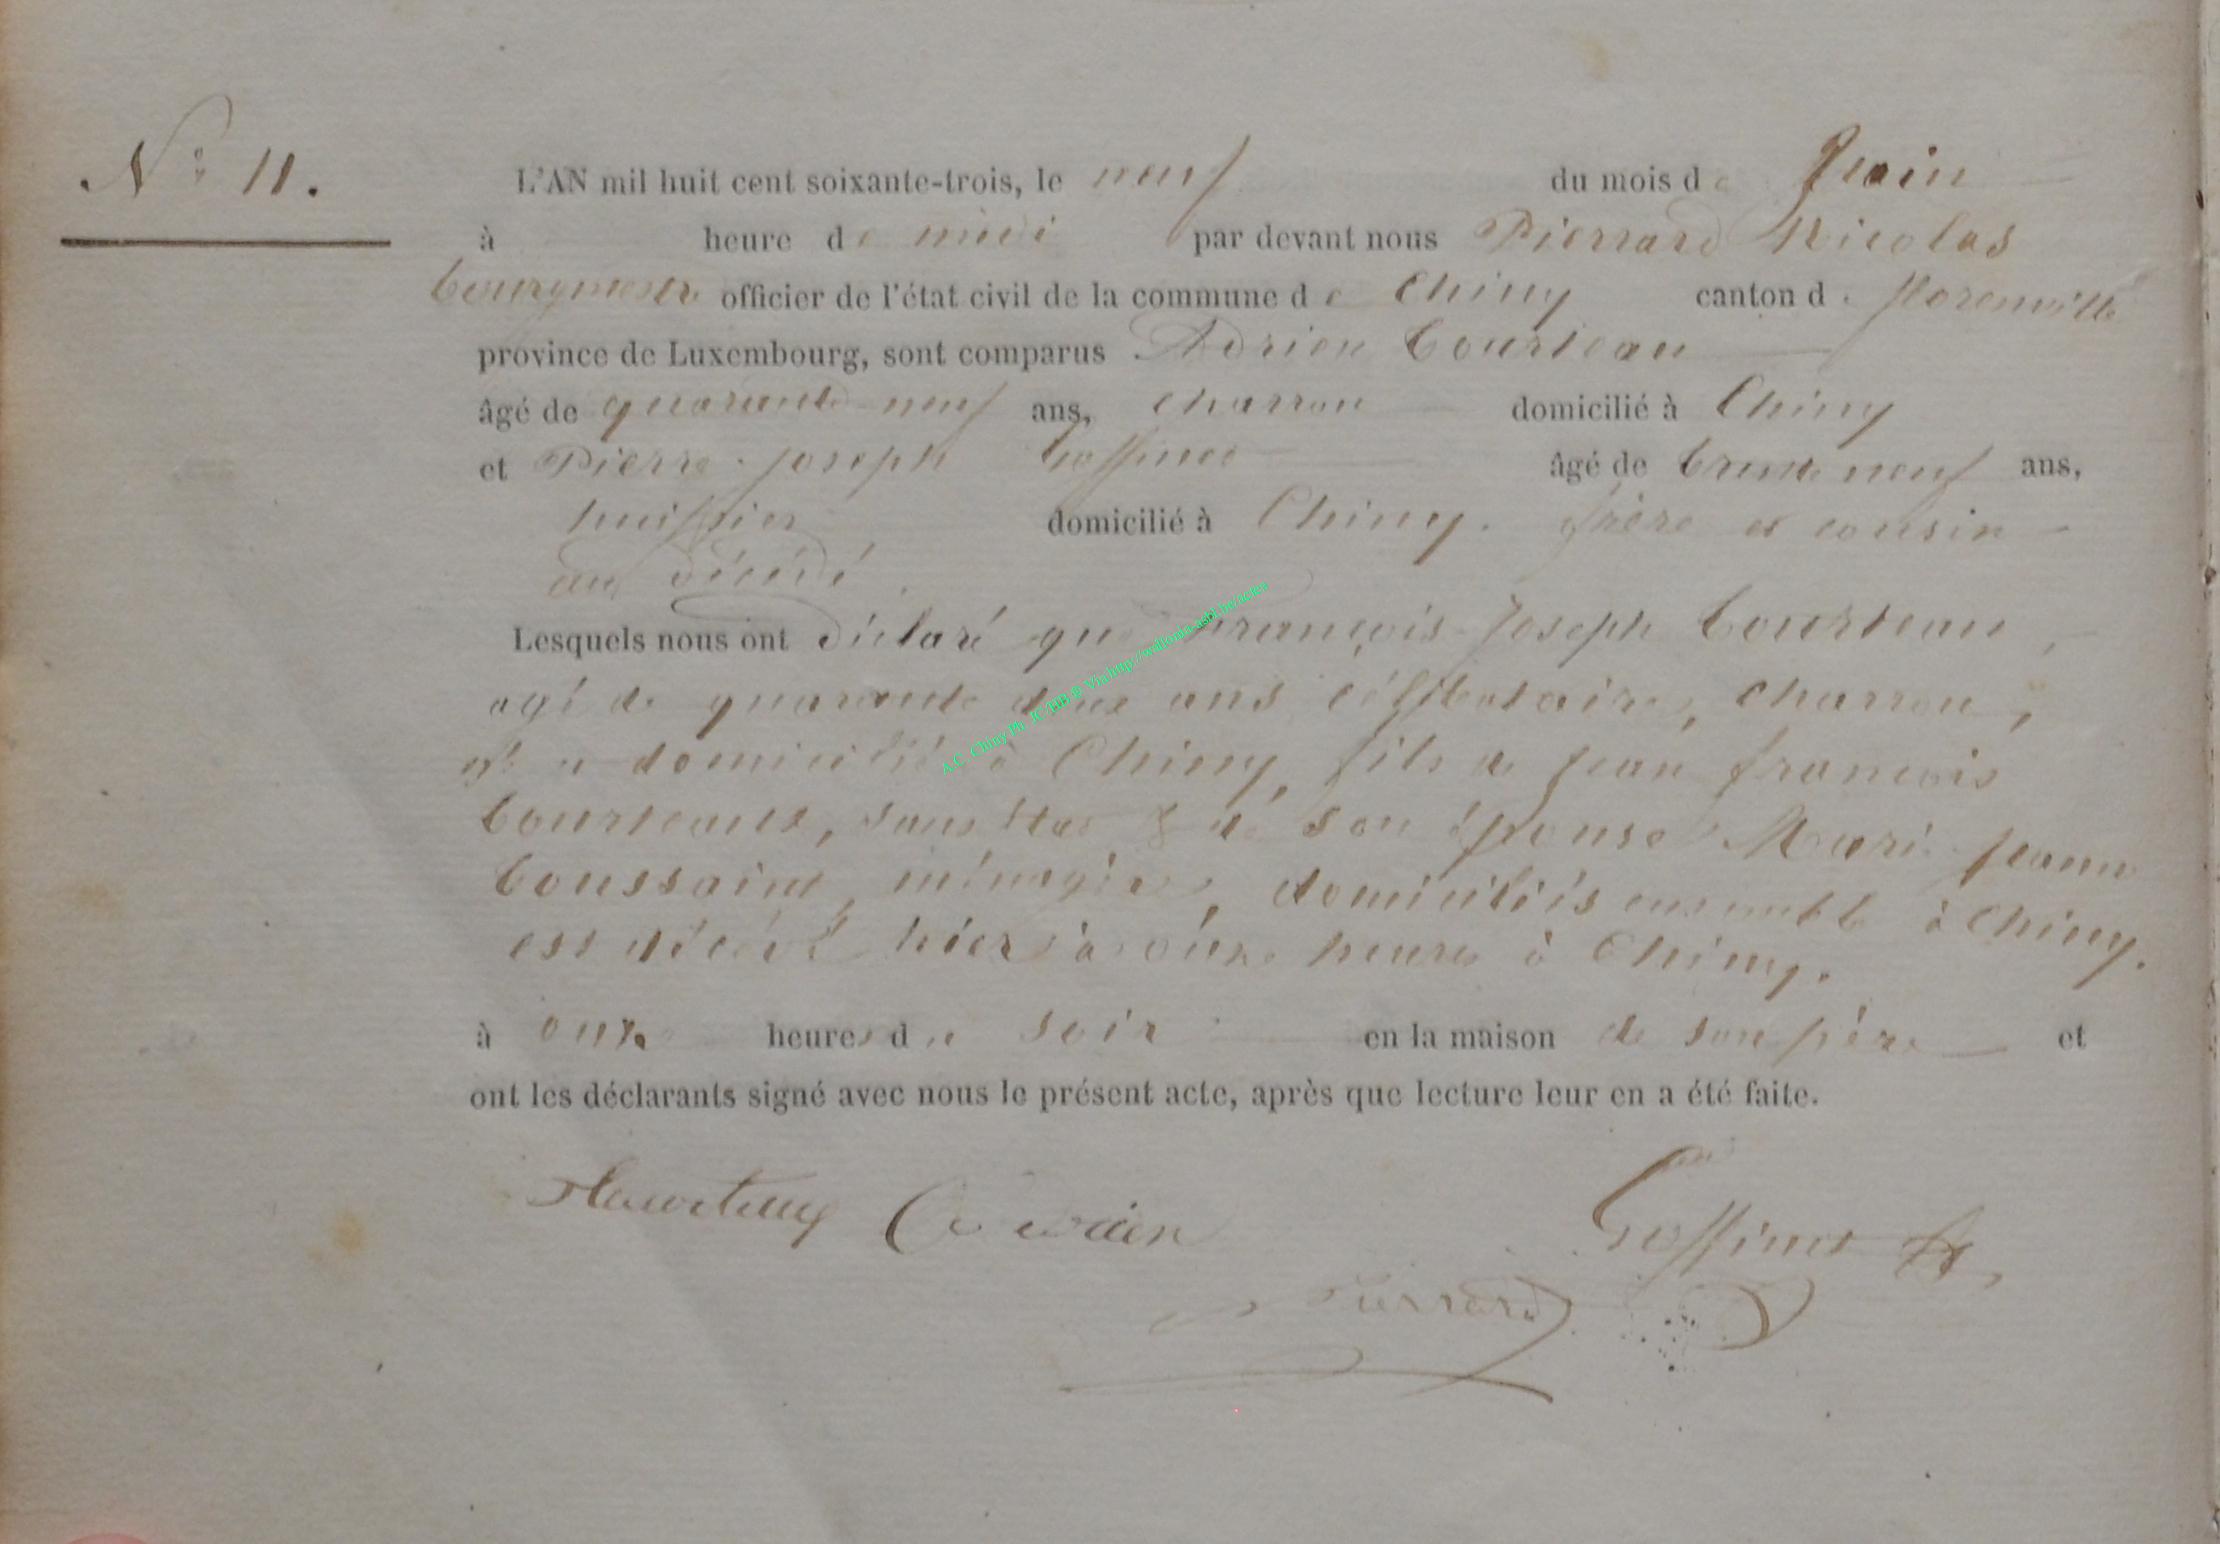 N° 11.
L'AN mil huit cent soixante-trois, le neuf du mois de Juin
à heure de midi par devant nous Pierrard Nicolas
bourgmestre officier de l'état civil de la commune de Chiny canton de florenville
province de Luxembourg, sont comparus Adrien Tourteau
âgé de quarante-neuf ans, charron domicilié à Chiny
et Pierre-joseph Goffinet âgé de trente neuf ans,
huissier domicilié à Chiny. frère et cousin
au décédé.
Lesquels nous ont déclaré que françois-Joseph Tourteau,
agé de quarante deux ans célibataire, charron,
né et domicilié à Chiny, fils de jean françois
Tourteaux, sans état & de son épouse Marie jeanne
Toussaint, ménagère, domiciliés ensemble à Chiny.
est décédé hier à onze heures à Chiny.
à onze heures du soir en la maison de son père et
ont les déclarants signé avec nous le présent acte, après que lecture leur en a été faite.
Tourteaux Adrien Goffinet
Pierrard
A.C. Chiny Ph JC/HB @ Via http://wallonia-asbl.be/actes